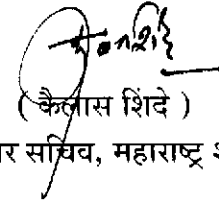 ( कैलास शिंदे )
र सचिव, महाराष्ट्र